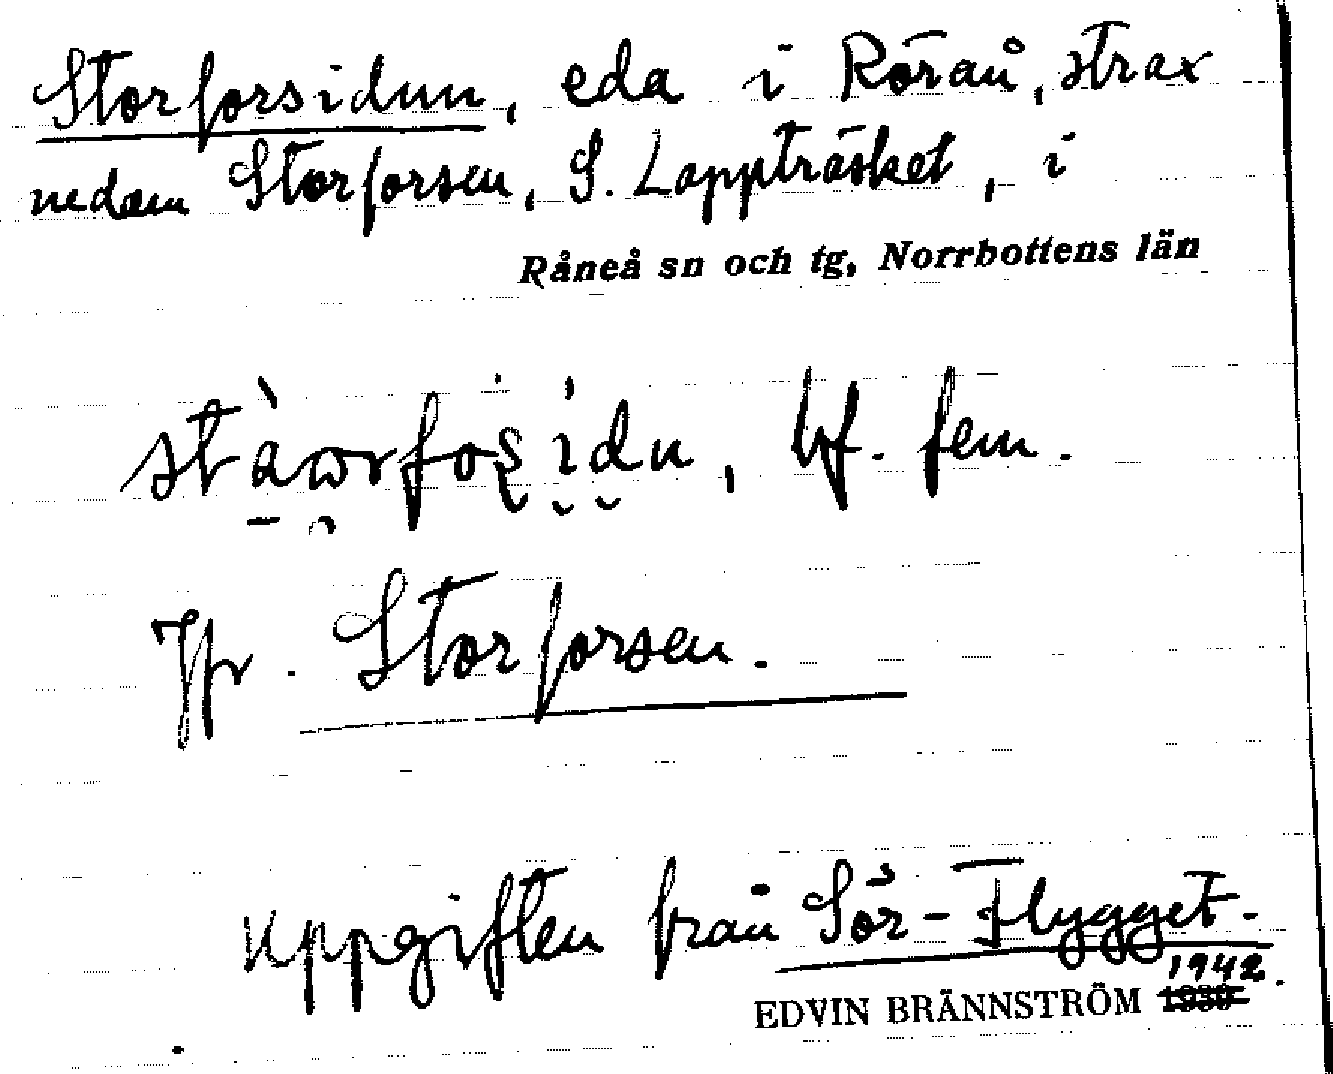 Storforsidun, eda i Rörån, strax
nedom Storforsen, S. Lappträsket, i
Råneå sn och tg, Norrbottens län
bf. fem.
Jfr. Storforsen.
Uppgiften från Sör-Flygget.
1942.
EDVIN BRÄNNSTRÖM 1930